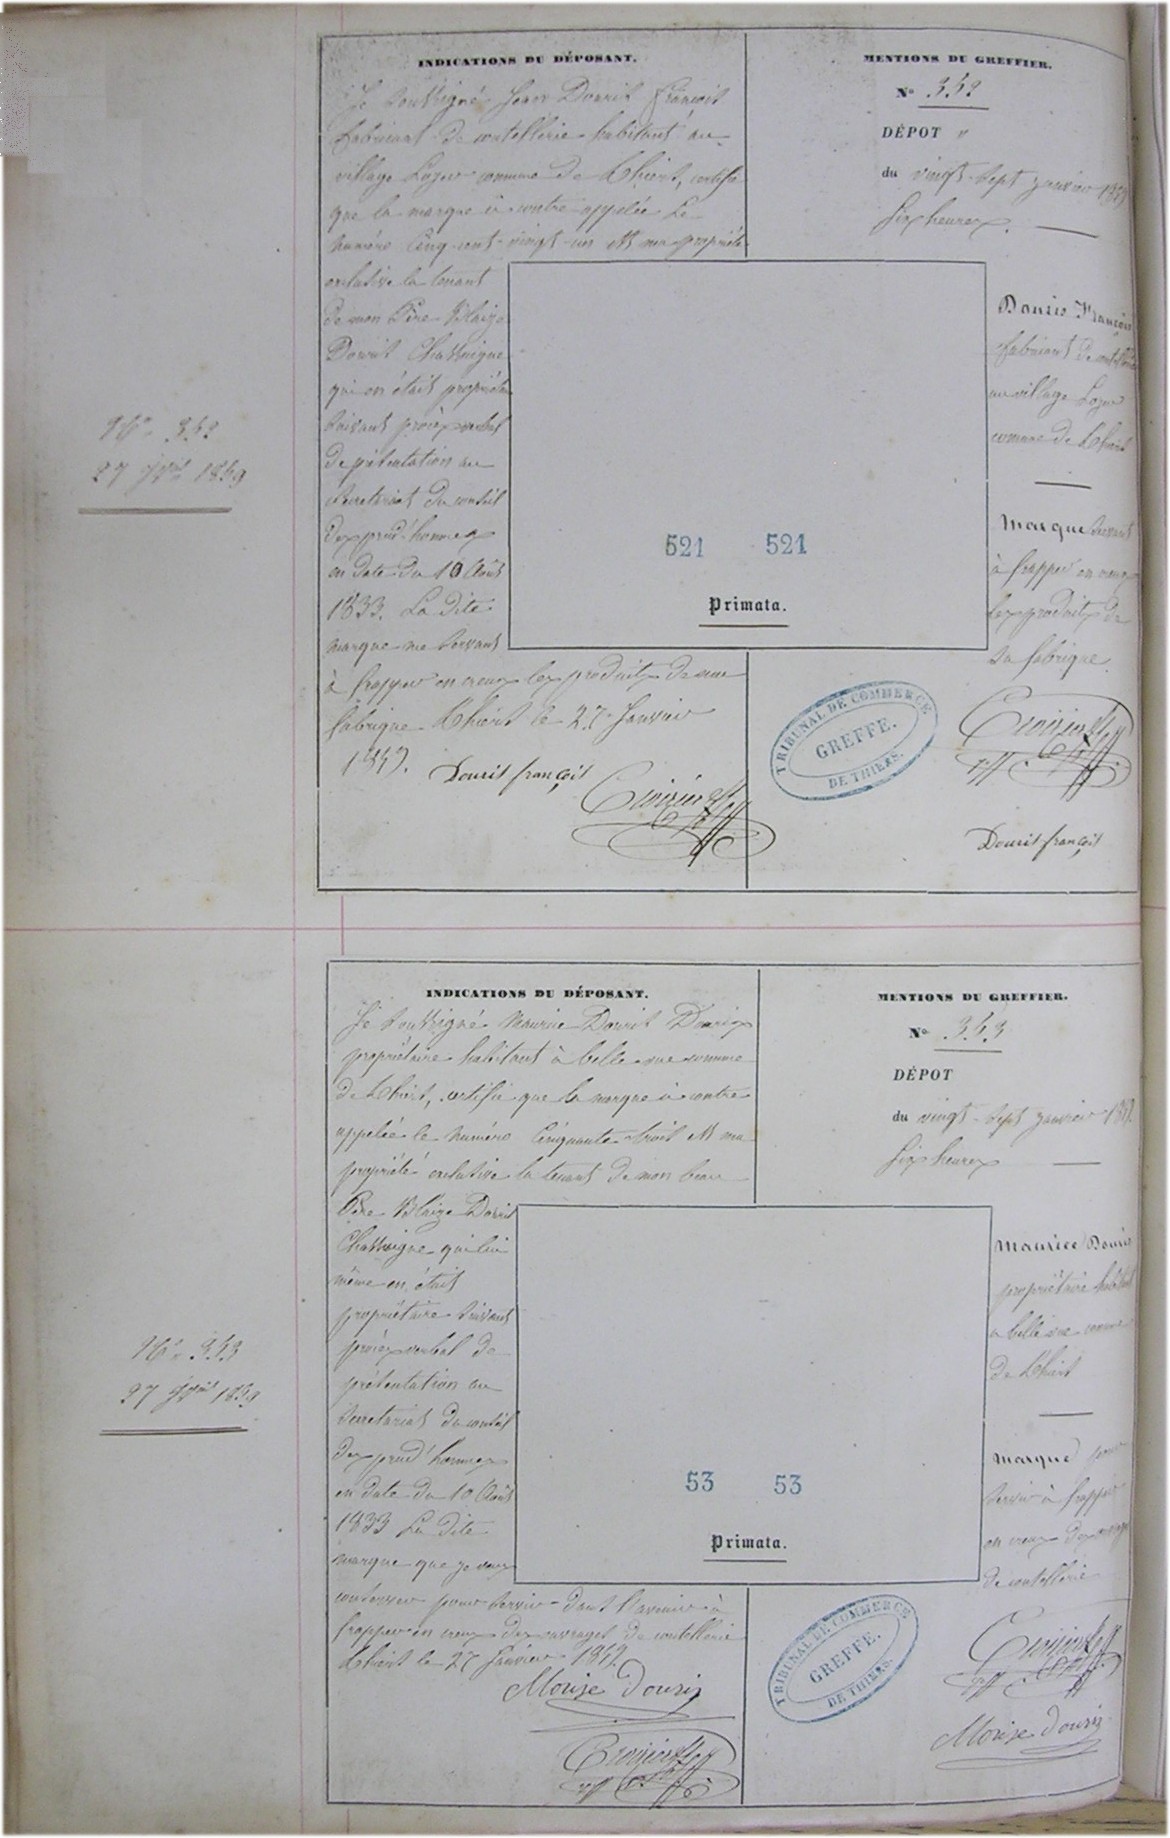 INDICATIONS DU DÉPOSANT.
Je soussigné Jean Douris françois
fabricant de coutellerie habitant au
village Lozur commune de Thiers, certifie
que la marque ci contre appelée Le
numéro Cinq-cent-vingt-un est ma propriété
exclusive la tenant
de mon Père Blaize
Douris Chassaigne
qui en était propriétaire
suivant procès verbal
de présentation au
Secrétariat du conseil
des prud'hommes
en date du 10 Août
1833. La dite
marque me servant
à frapper en creux les produits de ma
fabrique Thiers le 27 Janvier
1859.
Douris françois
Croizier
MENTIONS DU GREFFIER.
N° 352
DÉPOT "
du vingt-sept janvier 1859
six heures.
Douris François
fabricant de coutellerie
au village Lozur
commune de Thiers
Marque servant
à frapper en creux
les produits de
sa fabrique.
Croizier
Douris françois
521 521
Primata.
TRIBUNAL DE COMMERCE
GREFFE.
DE THIERS.
N° 352
27 Jvier 1859
INDICATIONS DU DÉPOSANT.
Je soussigné Maurice Douris Douris
propriétaire habitant à belle vue commune
de Thiers, certifie que la marque ci contre
appelée le numéro Cinquante-trois est ma
propriété exclusive la tenant de mon beau
Père Blaize Douris
Chassaigne qui lui
même en était
propriétaire suivant
procès verbal de
présentation au
Secrétariat du conseil
des prud'hommes
en date du 10 Août
1833 La dite
marque que je veux
conserver pour servir dans l'avenir à
frapper en creux des ouvrages de coutellerie
Thiers le 27 Janvier 1859.
Morise douris
Croizier
MENTIONS DU GREFFIER.
N° 353
DÉPOT
du vingt-sept janvier 1859.
six heures
Maurice Douris
propriétaire habitant
à belle vue commune
de Thiers
Marque pour
servir à frapper
en creux des ouvrages
de coutellerie
Croizier
Morise douris
53 53
Primata.
TRIBUNAL DE COMMERCE
GREFFE.
DE THIERS.
N° 353
27 Jvier 1859